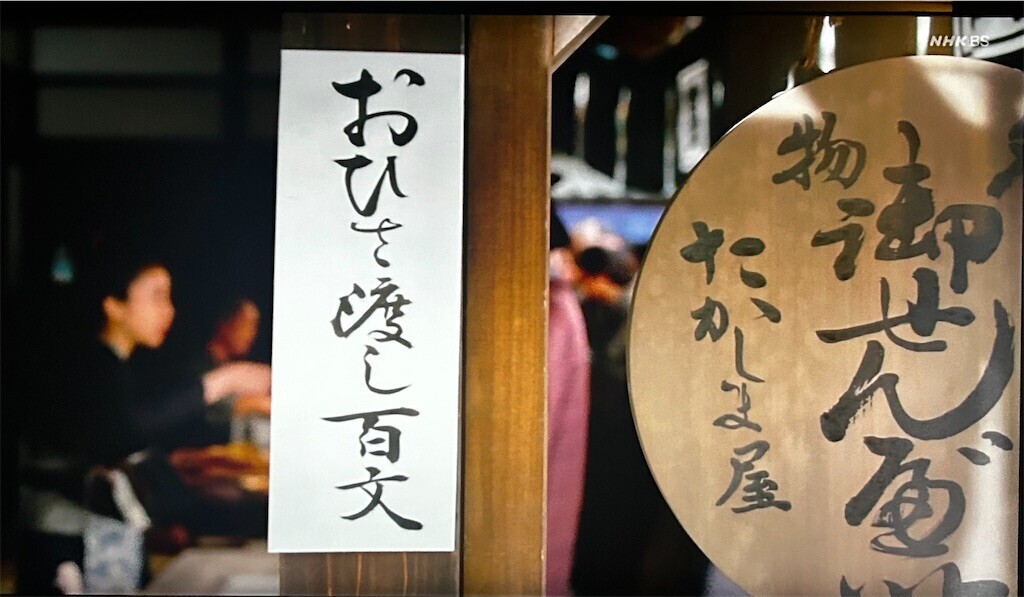 NHK BS
おひさ渡し百文
物
御せんべ
たかしま屋